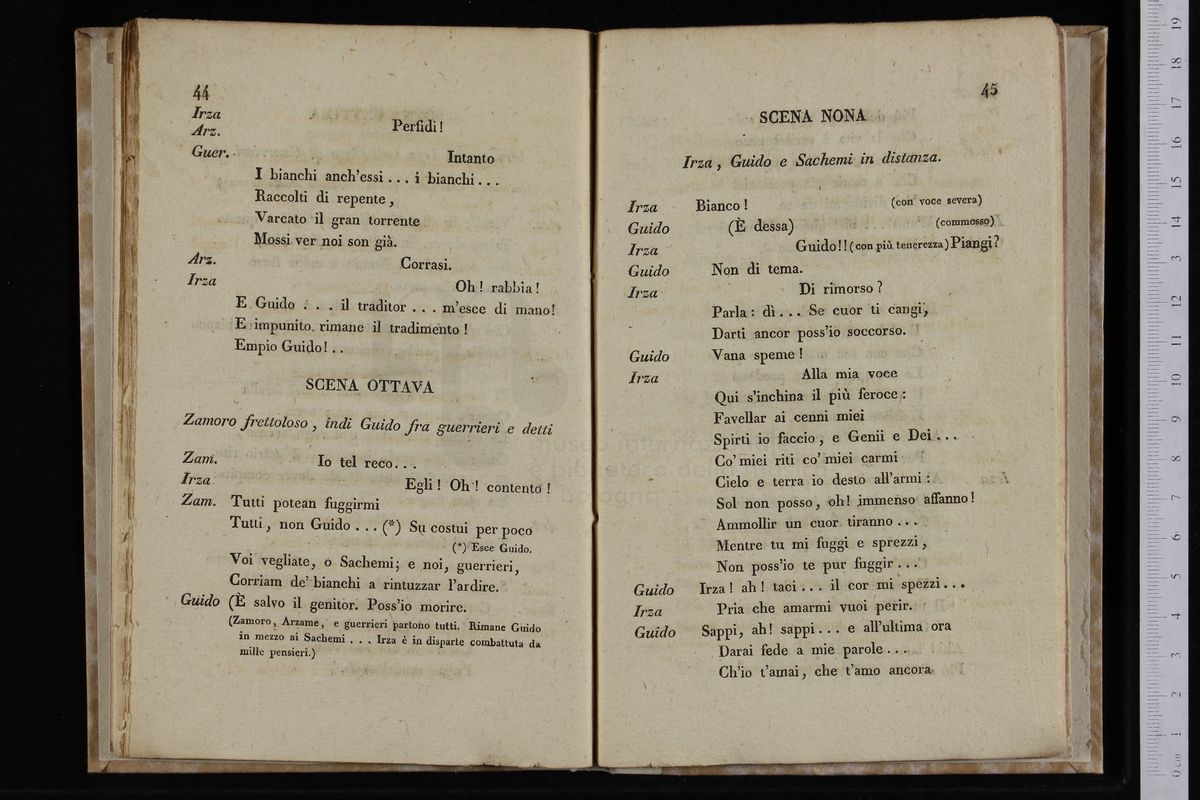 44
Irza
Arz. Perfidi!
Guer. Intanto
I bianchi anch'essi . . . i bianchi . . .
Raccolti di repente,
Varcato il gran torrente
Mossi ver noi son già.
Arz. Corrasi.
Irza Oh! rabbia!
E Guido . . . il traditor . . . m'esce di mano!
E impunito rimane il tradimento!
Empio Guido! . .
SCENA OTTAVA
Zamoro frettoloso, indi Guido fra guerrieri e detti
Zam. Io tel reco. . .
Irza Egli! Oh! contento!
Zam. Tutti potean fuggirmi
Tutti, non Guido . . . (*) Su costui per poco
(*) Esce Guido.
Voi vegliate, o Sachemi; e noi, guerrieri,
Corriam de' bianchi a rintuzzar l'ardire.
Guido (È salvo il genitor. Poss'io morire.
(Zamoro, Arzame, e guerrieri partono tutti. Rimane Guido
in mezzo ai Sachemi . . . Irza è in disparte combattuta da
mille pensieri.)
45
SCENA NONA
Irza, Guido e Sachemi in distanza.
Irza Bianco! (con voce severa)
Guido (È dessa) (commosso)
Irza Guido!! (con più tenerezza) Piangi?
Guido Non di tema.
Irza Di rimorso?
Parla: dì . . . Se cuor ti cangi,
Darti ancor poss'io soccorso.
Guido Vana speme!
Irza Alla mia voce
Qui s'inchina il più feroce:
Favellar ai cenni miei
Spirti io faccio, e Genii e Dei . . .
Co' miei riti co' miei carmi
Cielo e terra io desto all'armi:
Sol non posso, oh! immenso affanno!
Ammollir un cuor tiranno . . .
Mentre tu mi fuggi e sprezzi,
Non poss'io te pur fuggir . . .
Guido Irza! ah! taci . . . il cor mi spezzi . . .
Irza Pria che amarmi vuoi perir.
Guido Sappi, ah! sappi . . . e all'ultima ora
Darai fede a mie parole . . .
Ch'io t'amai, che t'amo ancora
0 cm 1 2 3 4 5 6 7 8 9 10 11 12 13 14 15 16 17 18 19